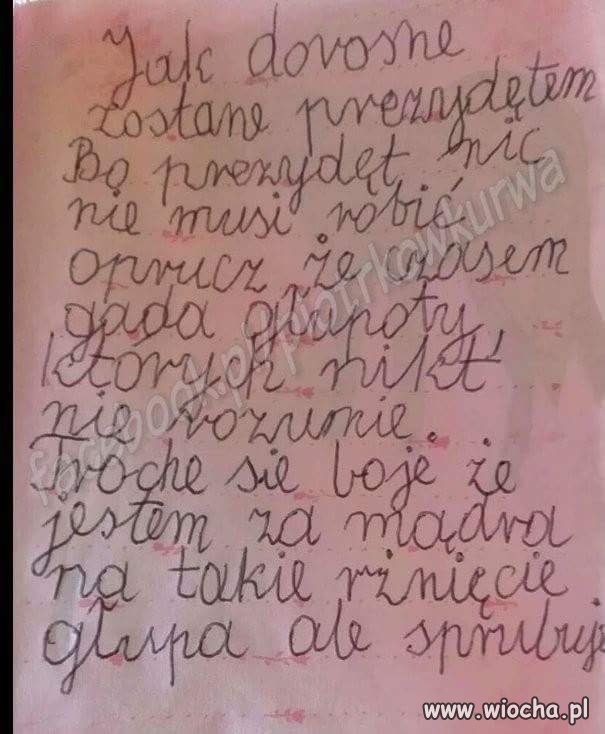 Jak dorosne
zostane prezydętem
Bo prezydęt nic
nie musi robić
oprucz że czasem
gada głupoty,
których nikt
nie rozumie.
Troche sie boje że
jestem za mądra
na takie rżnięcie
głupa ale sprubuje
facebook.pl/piotrkowkurwa
www.wiocha.pl